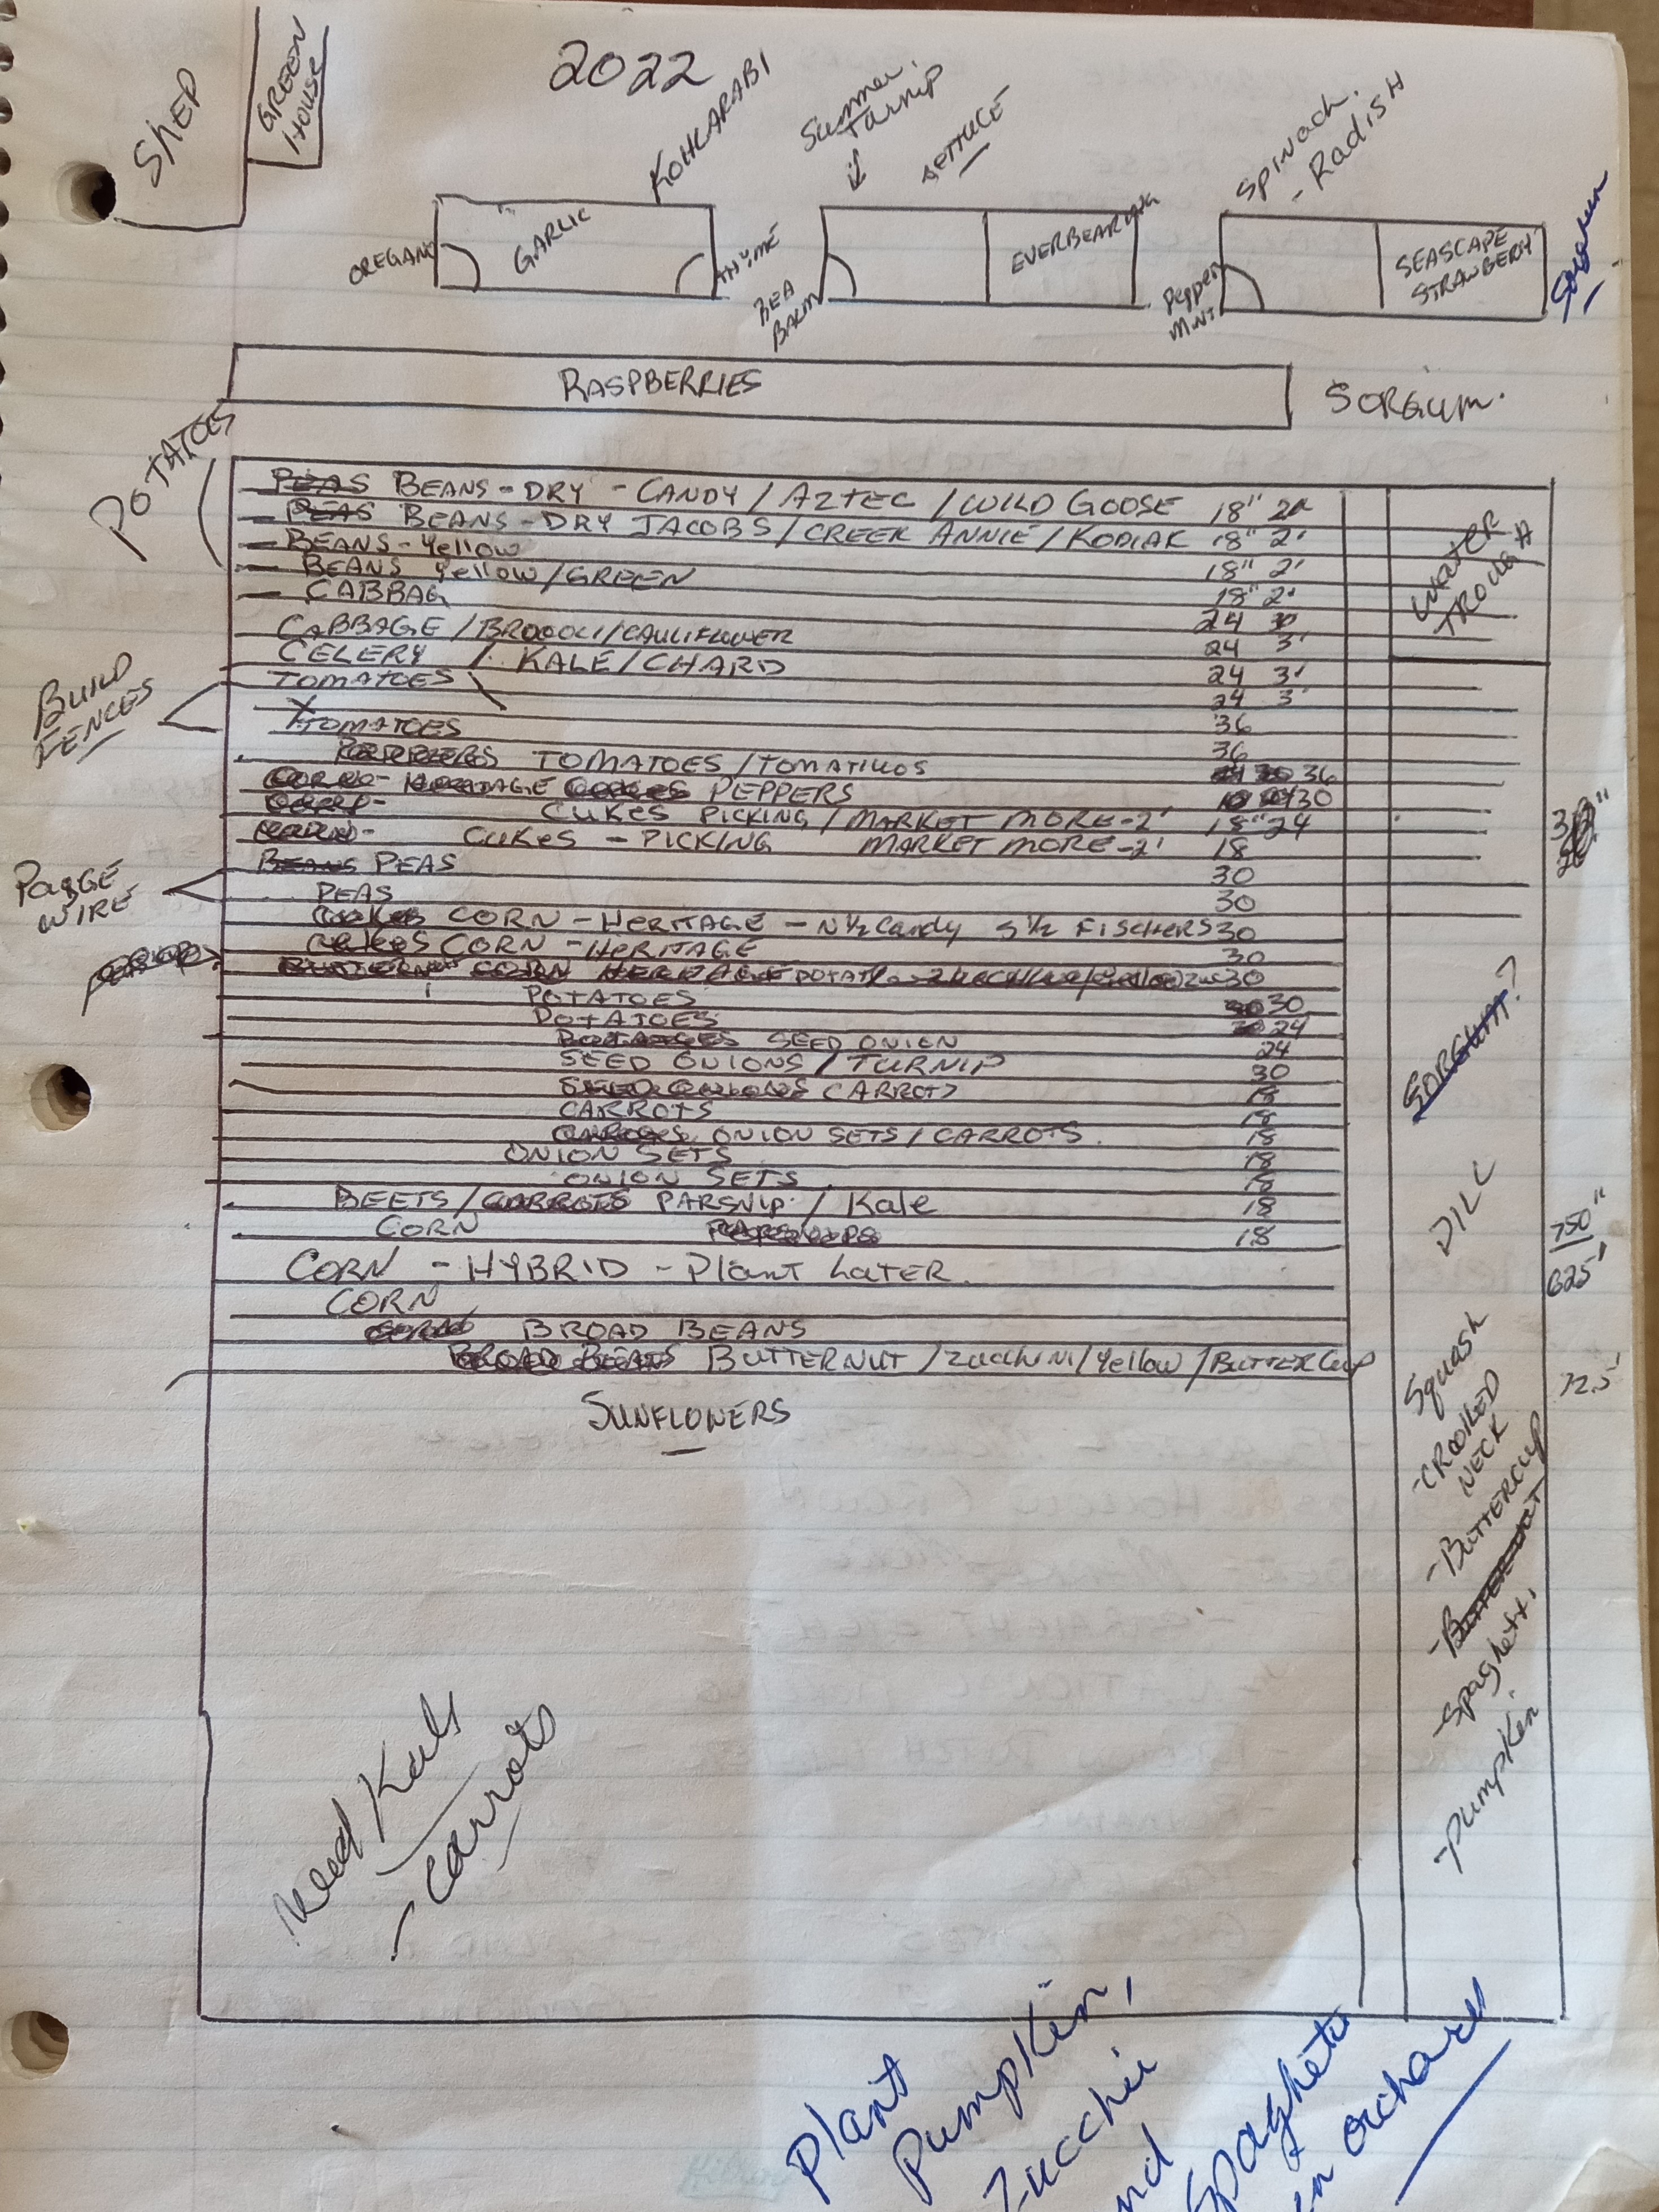 2022
SHED
GREEN
HOUSE
KOHLARABI
Summer
Turnip
LETTUCE
SPINACH.
- Radish
OREGANO
GARLIC
THYME
BEA
BALM
EVERBEARING
Pepper
Mint
SEASCAPE
STRAWBERRY
Sorgum
RASPBERRIES
SORGUM.
POTATOES
PEAS BEANS - DRY - CANDY / AZTEC / WILD GOOSE 18" 2'
PEAS BEANS - DRY JACOBS / CREEK ANNIE / KODIAK 18" 2'
BEANS - Yellow 18" 2'
BEANS Yellow / GREEN 18" 2'
CABBAG 24 30
CABBAGE / BROOOLI / CAULIFLOWER 24 3'
CELERY / KALE / CHARD 24 3'
TOMATOES 24 3'
36
TOMATOES 36
TOMATOES / TOMATILLOS 36
HERITAGE PEPPERS 30
CUKES PICKING / MARKET MORE - 2' 18" 24
CUKES - PICKING MARKET MORE - 2' 18
BEANS PEAS 30
PEAS 30
CORN - HERITAGE - N ½ Candy S ½ FISCHERS 30
CORN - HERITAGE 30
CORN HERITAGE 30
POTATOES 30
POTATOES 24
SEED ONION 24
SEED ONIONS / TURNIP 30
SEED ONIONS CARROTS 18
CARROTS 18
ONION SETS / CARROTS 18
ONION SETS 18
ONION SETS 18
BEETS / CARROTS PARSNIP / Kale 18
CORN 18
CORN - HYBRID - Plant LATER
CORN
BROAD BEANS
BROAD BEANS BUTTERNUT / ZUCCHINI / Yellow / BUTTERCUP
SUNFLOWERS
BUILD
FENCES
PAIGE
WIRE
WATER
TROUGH
SORGHUM?
DILL
750"
625"
72.5'
Squash
- CROOKED
NECK
- BUTTERCUP
- BUTTERNUT
- Spaghetti
- Pumpkin
need Kale
- Carrots
Plant
Pumpkin,
Zucchii
Spaghetti
orchard